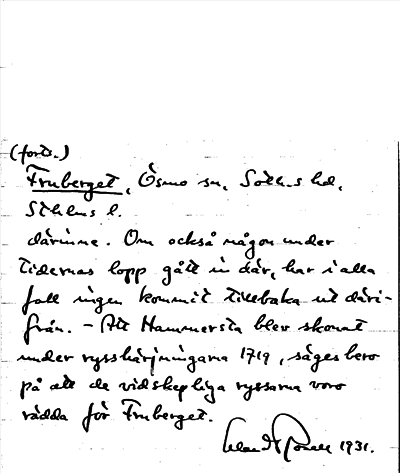 (forts.)
Fruberget, Ösmo sn, Soth.s hd,
Sthlms l.
därinne. Om också någon under
tidernas lopp gått in där, har i alla
fall ingen kommit tillbaka ut däri-
från. – Att Hammersta blev skonat
under rysshärjningarna 1719, säges bero
på att de vidskepliga ryssarna voro
rädda för Fruberget.
1931.